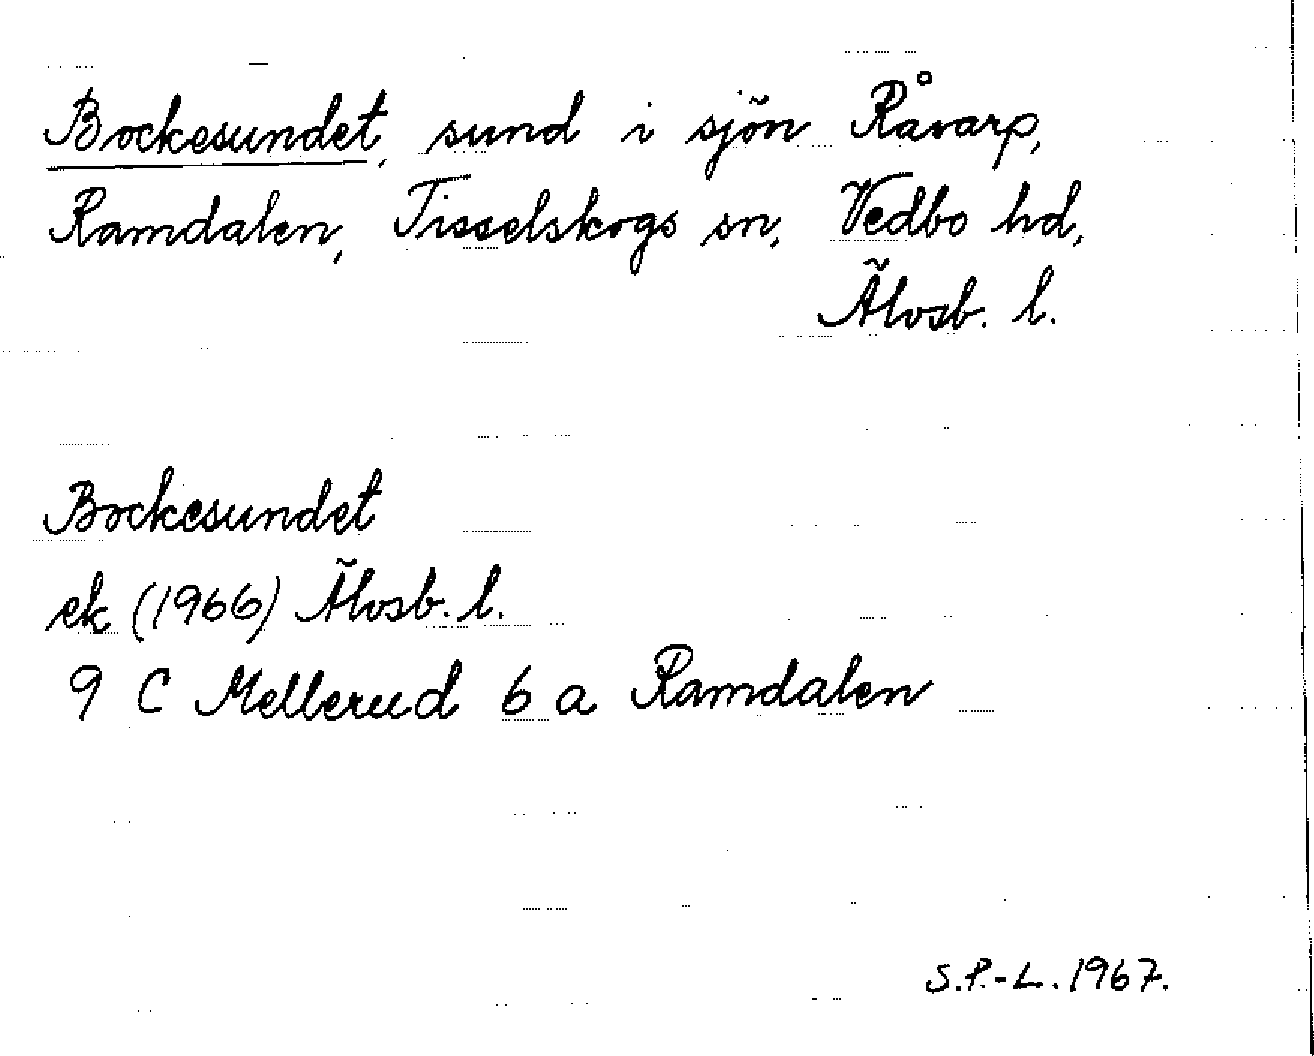 Bockesundet, sund i sjön Råvarp,
Ramdalen, Tisselskogs sn, Vedbo hd,
Älvsb. l.
Bockesundet
ek (1966) Älvsb. l.
9 C Mellerud 6 a Ramdalen
S.P.-L. 1967.